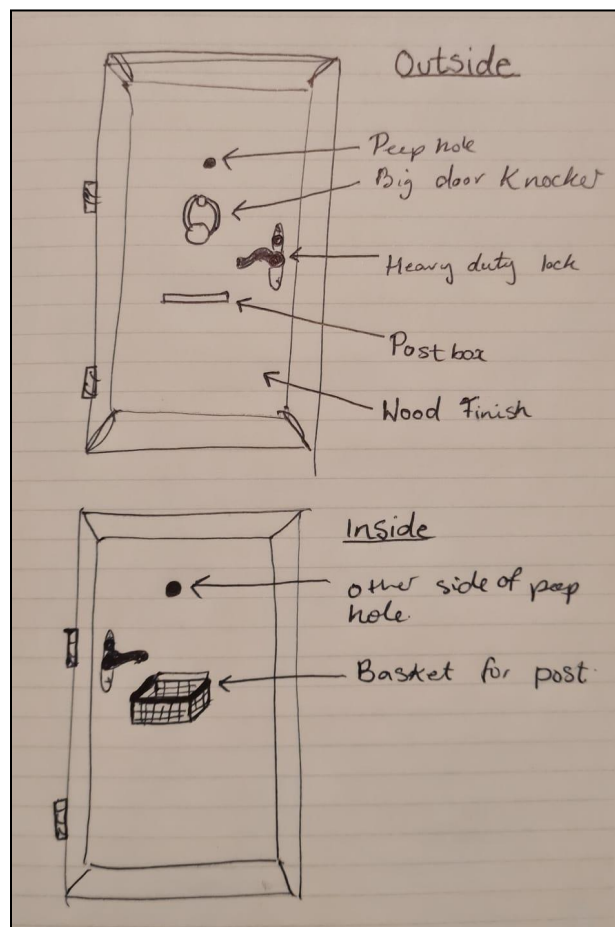 Outside
Peep hole
Big door Knocker
Heavy duty lock
Postbox
Wood Finish
Inside
other side of peep
hole.
Basket for post.